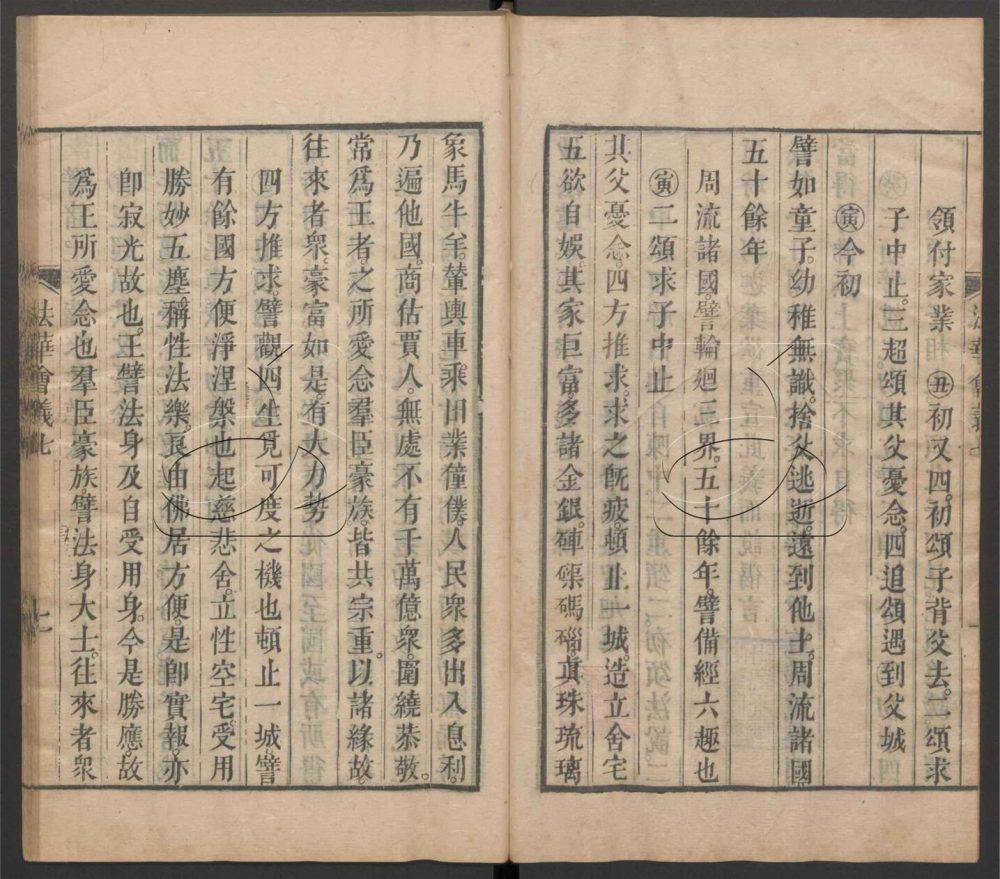 領付家業 ㊀丑初又四。初頌子背父去。二頌求
子中止。三超頌其父憂念。四追頌遇到父城
寅今初
譬如童子。幼稚無識。捨父逃逝。遠到他土。周流諸國
五十餘年
周流諸國。譬輪廻三界。五十餘年。譬備經六趣也
寅二頌求子中止
其父憂念。四方推求。求之旣疲。頓止一城。造立舍宅
五欲自娛。其家巨富。多諸金銀。硨磲碼碯。眞珠琉璃
象馬牛羊。輦輿車乘。田業僮僕。人民衆多。出入息利。
乃遍他國。商估賈人。無處不有。千萬億衆。圍繞恭敬。
常爲王者之所愛念。羣臣豪族。皆共宗重。以諸緣故。
往來者衆。豪富如是。有大力勢
四方推求。譬觀四生。覓可度之機也。頓止一城。譬
有餘國方便淨涅槃也。起慈悲舍。立性空宅。受用
勝妙五塵。稱性法樂。良由佛居方便。是卽實報。亦
卽寂光故也。王譬法身及自受用身。今是勝應。故
爲王所愛念也。羣臣豪族。譬法身大士。往來者衆
法華會義七
七